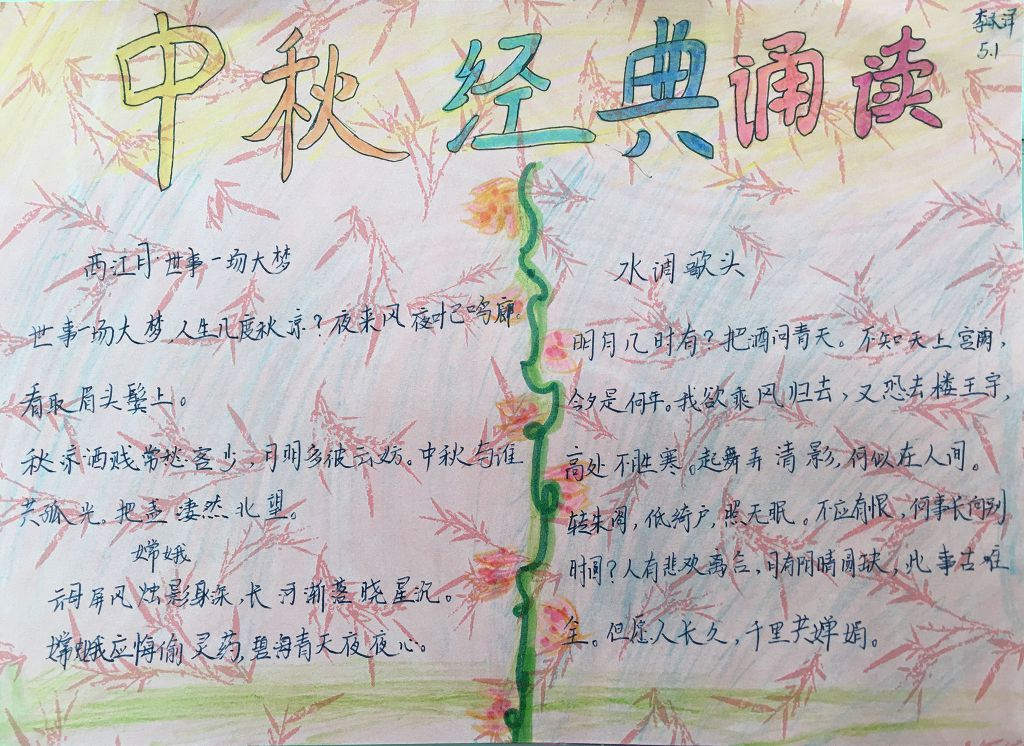 中秋经典诵读
5.1
西江月·世事一场大梦
世事一场大梦,人生几度秋凉?夜来风夜忆鸣廊。
看取眉头鬓上。
秋凉酒贱常愁客少,月明多被云妨。中秋与谁
共孤光。把盏凄然北望。
嫦娥
云母屏风烛影深,长河渐落晓星沉。
嫦娥应悔偷灵药,碧海青天夜夜心。
水调歌头
明月几时有?把酒问青天。不知天上宫阙,
今夕是何年。我欲乘风归去,又恐去楼王宇,
高处不胜寒。起舞弄清影,何似在人间。
转朱阁,低绮户,照无眠。不应有恨,何事长向别
时圆?人有悲欢离合,月有阴晴圆缺,此事古难
全。但愿人长久,千里共婵娟。